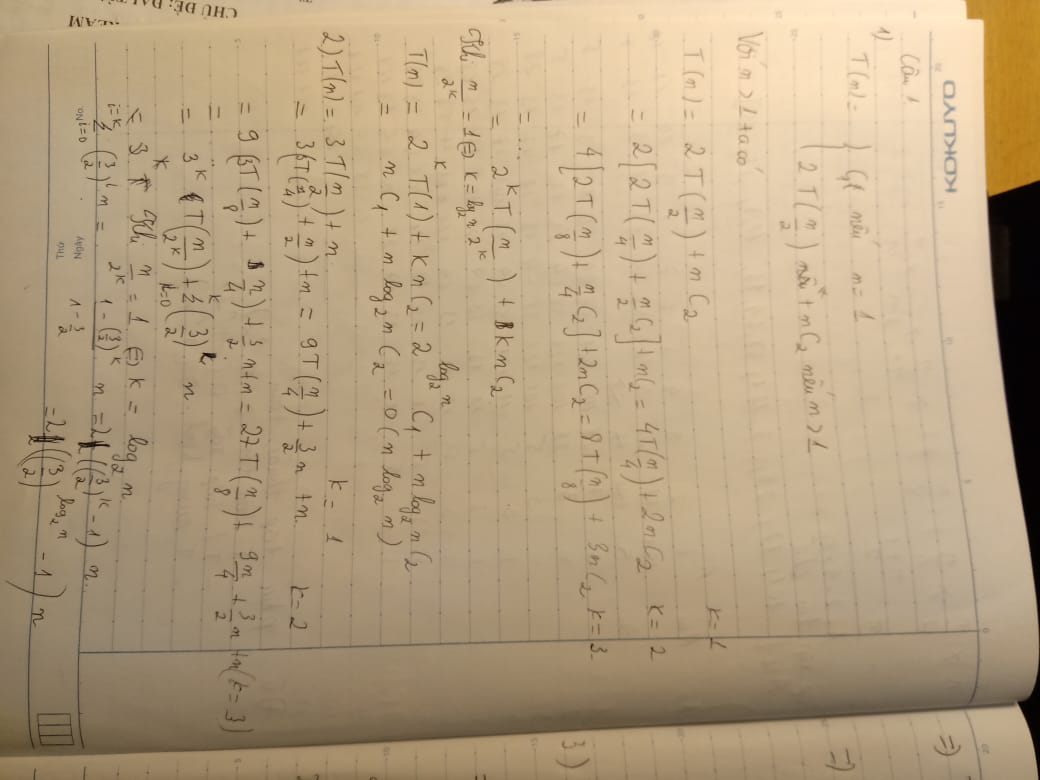 KOKUYO
Câu 1.
1)
T(n) = { C1 nếu n = 1
2 T(n/2) + n C2 nếu n > 1
Với n > 1 ta có
T(n) = 2 T(n/2) + n C2 k = 1
= 2[2 T(n/4) + n/2 C2] + n C2 = 4T(n/4) + 2n C2 k = 2
= 4[2T(n/8) + n/4 C2] + 2n C2 = 8T(n/8) + 3n C2 k = 3
= ...
= 2^k T(n/2^k) + k n C2
Khi n/2^k = 1 ⇔ k = log2 n
T(n) = 2^k T(1) + k n C2 = 2^(log2 n) C1 + n log2 n C2
= n C1 + n log2 n C2 = O(n log2 n)
2) T(n) = 3 T(n/2) + n k = 1
= 3(3T(n/4) + n/2) + n = 9T(n/4) + 3/2 n + n. k = 2
= 9(3T(n/8) + n/4) + 3/2 n + n = 27 T(n/8) + 9n/4 + 3/2 n + n (k = 3)
= ...
= 3^k T(n/2^k) + Σ (3/2) n
Khi n/2^k = 1 ⇔ k = log2 n
i=k Σ i=0 (3/2)^i n = (1 - (3/2)^k)/(1 - 3/2) n = 2((3/2)^k - 1) n
= 2((3/2)^(log2 n) - 1) n
No.
Thứ
Ngày
⇒
⇒
3)
CHỦ ĐỀ: